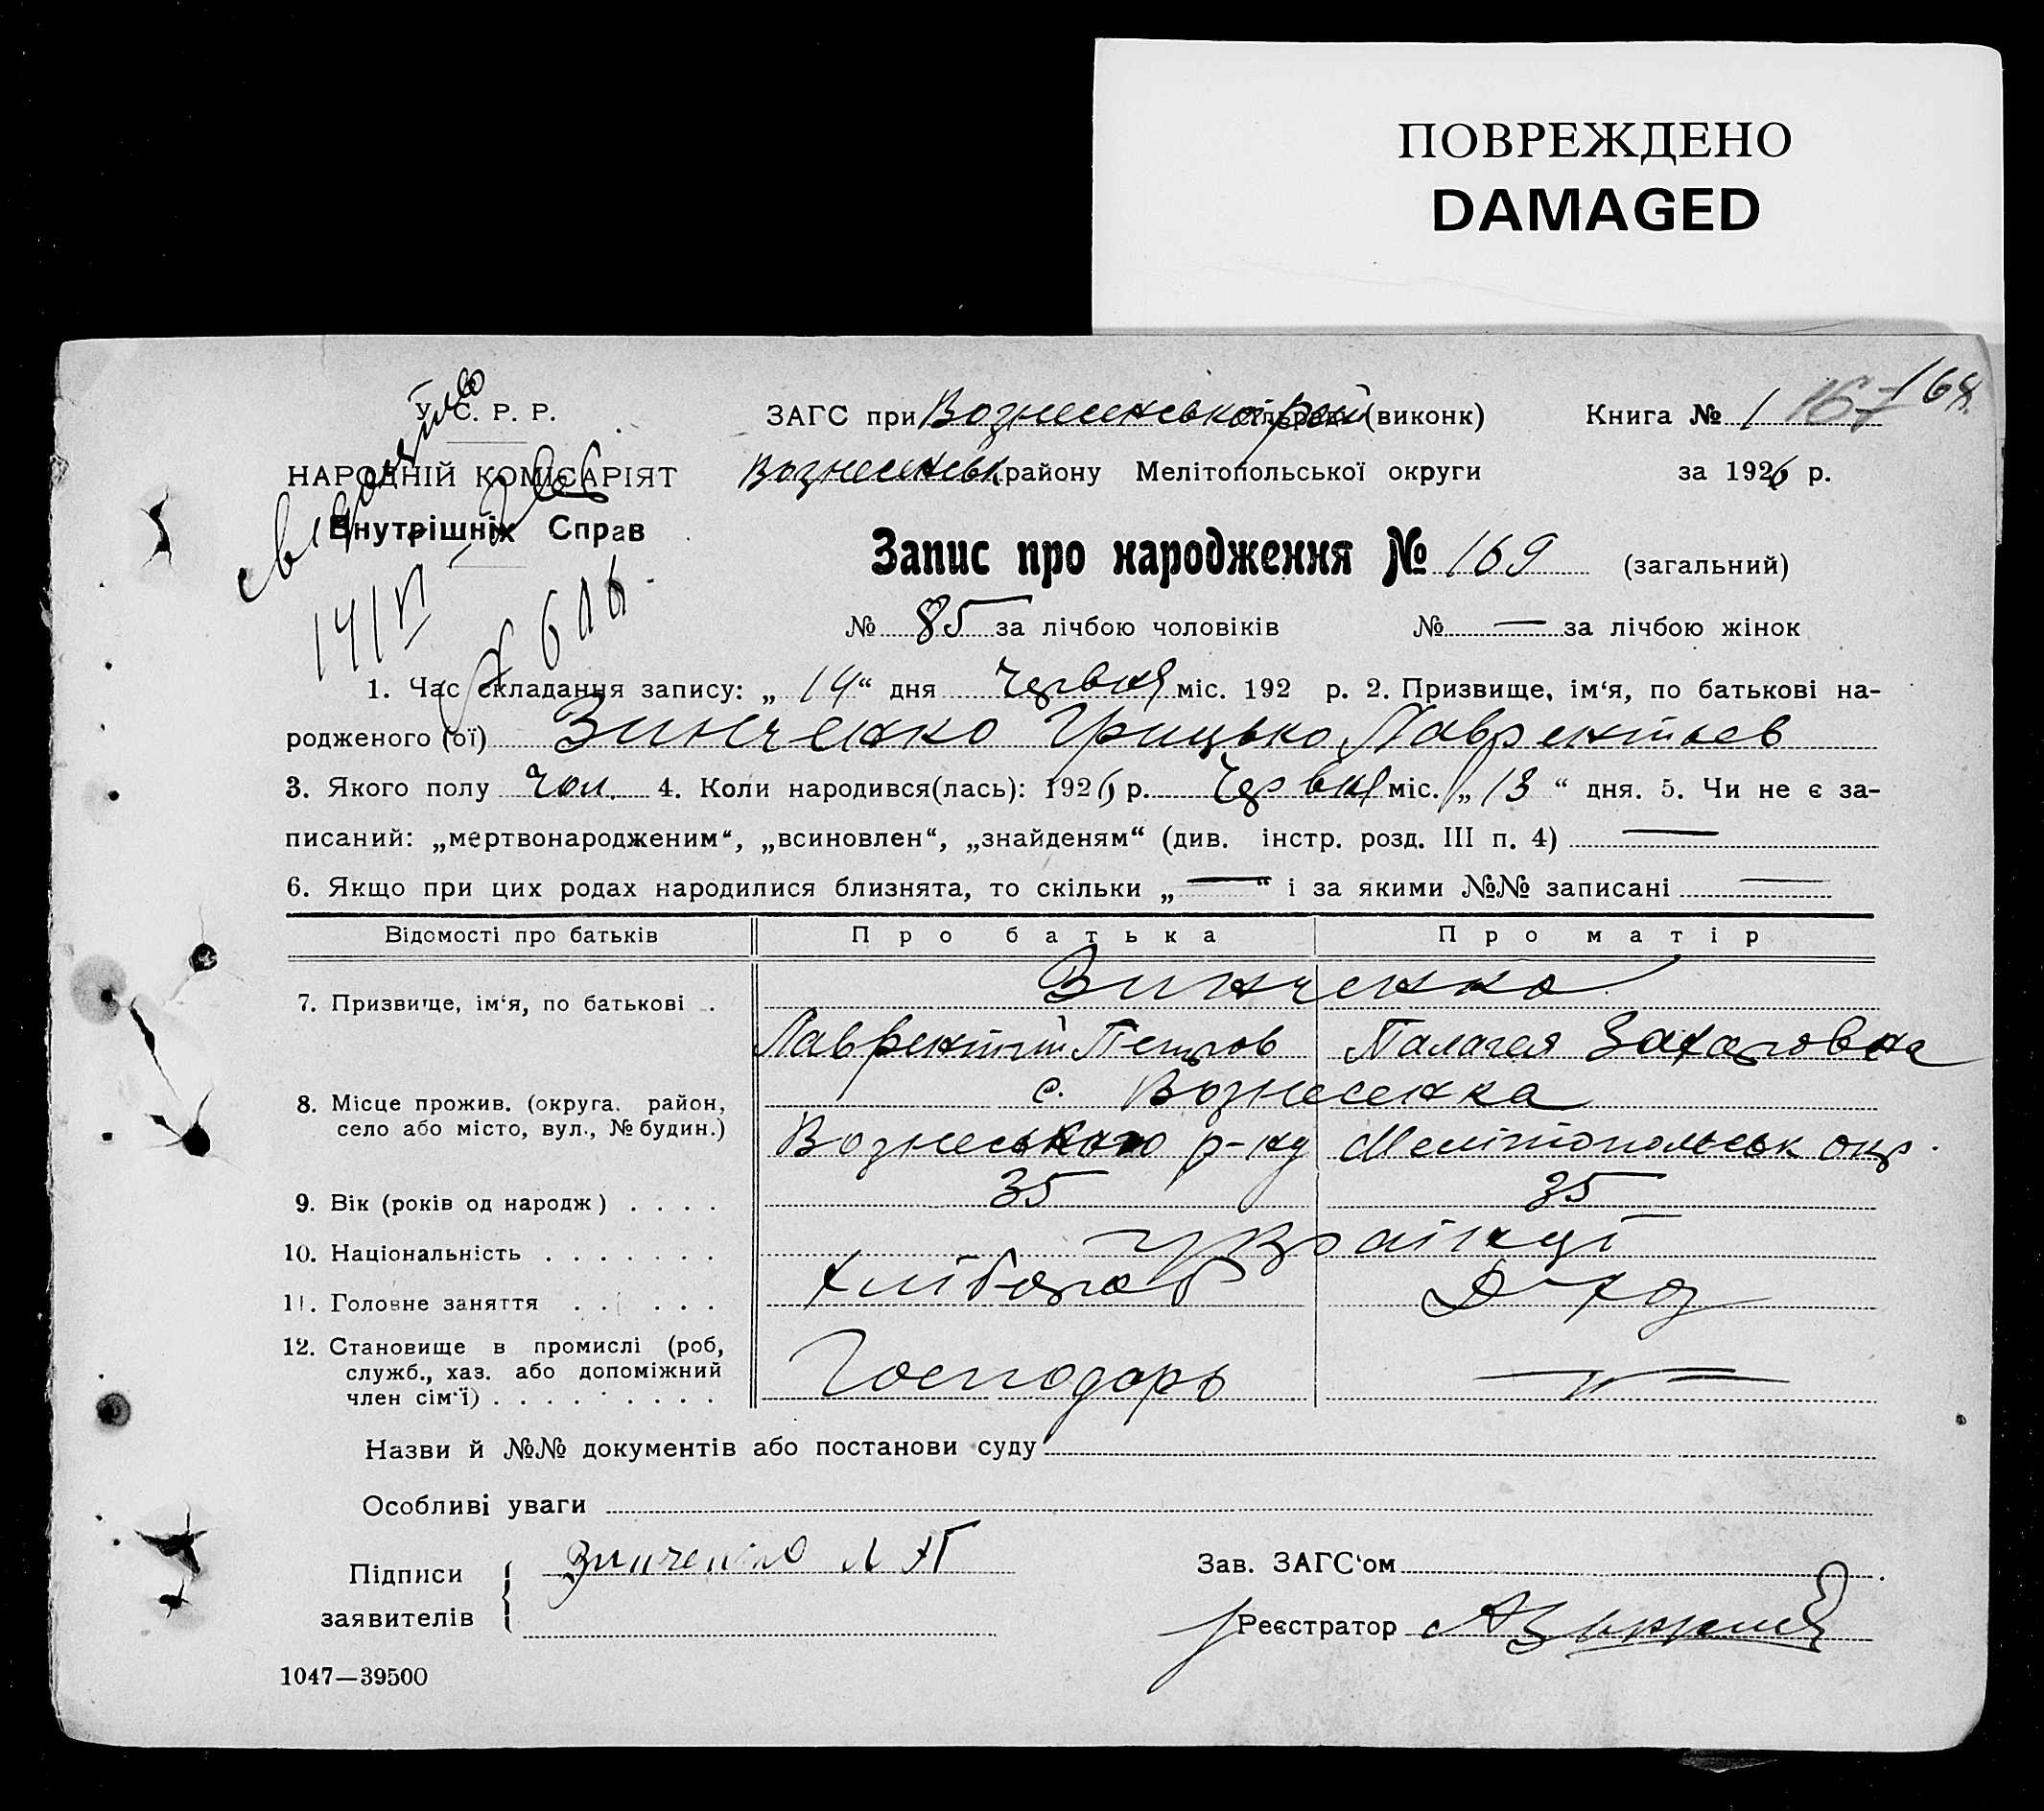 ПОВРЕЖДЕНО
DAMAGED
У. С. Р. Р.
ЗАГС при Вознесенському рай (виконк)
Книга № 1 167 168
НАРОДНІЙ КОМІСАРІЯТ
Вознесенськ району Мелітопольської округи
за 1926 р.
Внутрішніх Справ
14/VI
Запис про народження № 169 (загальний)
№ 85 за лічбою чоловіків № — за лічбою жінок
1. Час складання запису: „ 14 “ дня Червня міс. 192 р. 2. Призвище, ім‘я, по батькові на-
родженого (ої) Зинченко Грицько Лаврентьев
3. Якого полу чол. 4. Коли народився(лась): 1926 р. Червня міс. „ 13 “ дня. 5. Чи не є за-
писаний: „мертвонародженим“, „всиновлен“, „знайденям“ (див. інстр. розд. III п. 4) —
6. Якщо при цих родах народилися близнята, то скільки „ — “ і за якими №№ записані —
Відомості про батьків Про батька Про матір
Зинченко
7. Призвище, ім‘я, по батькові .
Лаврентий Петров Палагея Захаровна
с. Вознесенка
8. Місце прожив. (округа. район,
село або місто, вул., № будин.)
Вознеського р-ну Мелітопольськ окр.
9. Вік (років од народж) . . . . 35 35
10. Національність . . . . . . . українці
11. Головне заняття . . . . . Хлібороб Д-хоз
12. Становище в промислі (роб,
служб., хаз. або допоміжний
член сім‘ї) . . . . . . . .
Господарь — " —
Назви й №№ документів або постанови суду
Особливі уваги
Підписи Зинченко Л П
заявителів
Зав. ЗАГС‘ом
Реєстратор
1047—39500